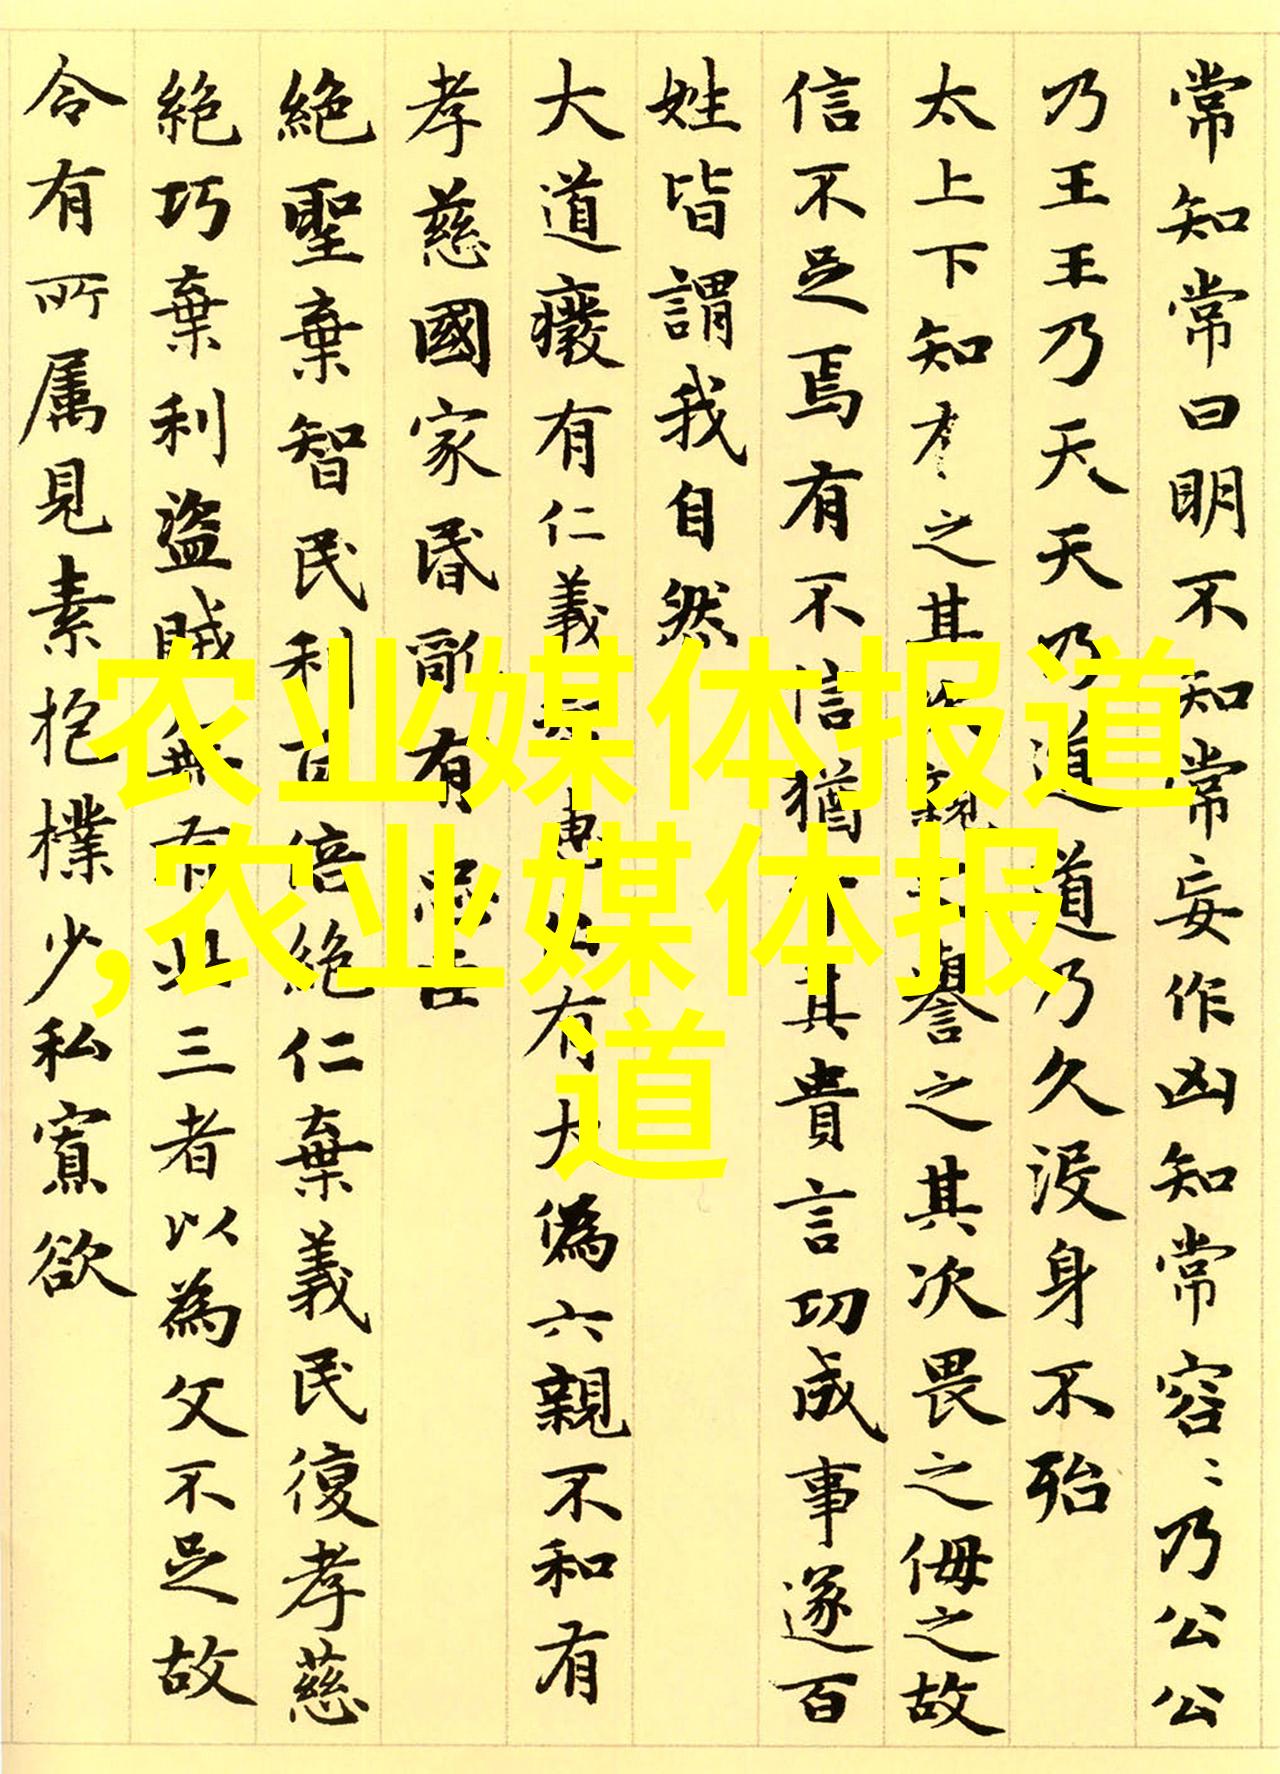 常知常曰明不知常妄作凶知常容：乃公公
乃王王乃天天乃道道乃久沒身不殆
太上下知有之其次親之譽之其次畏之侮之故
信不足焉有不信猶其貴言功成事遂百
姓皆謂我自然
大道癈有仁義智惠出有大偽六親不和有
孝慈國家昏亂有忠臣
絕聖棄智民利百倍絕仁棄義民復孝慈
絕巧棄利盜賊無有此三者以為文不足故
令有所属見素抱樸少私寡欲
农业媒体报道
,农业媒体报
道